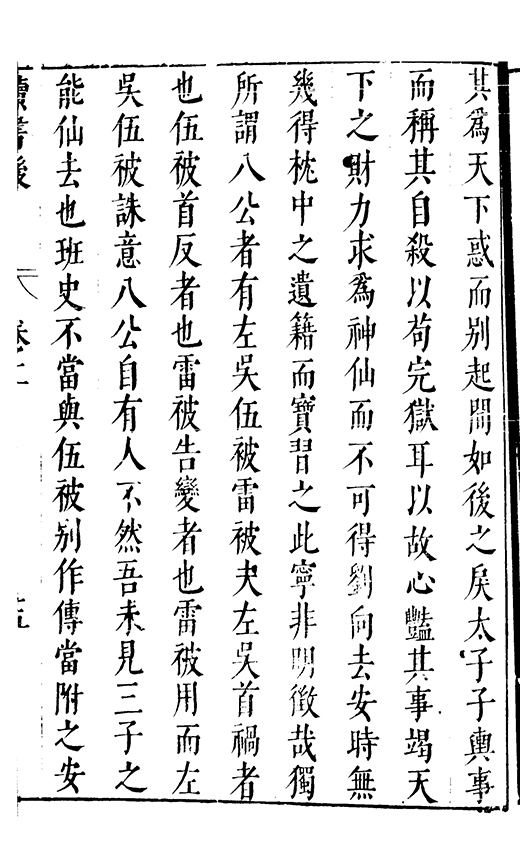 其爲天下惑而别起閙如後之戾太子子輿事
而稱其自殺以苟完獄耳以故心豔其事竭天
下之財力求爲神仙而不可得劉向去安時無
幾得枕中之遺籍而寶習之此寧非明徴哉獨
所謂八公者有左吳伍被雷被夫左吳首禍者
也伍被首反者也雷被告變者也雷被用而左
吳伍被誅意八公自有人不然吾未見三子之
能仙去也班史不當與伍被别作傳當附之安
讀書後 卷二 五